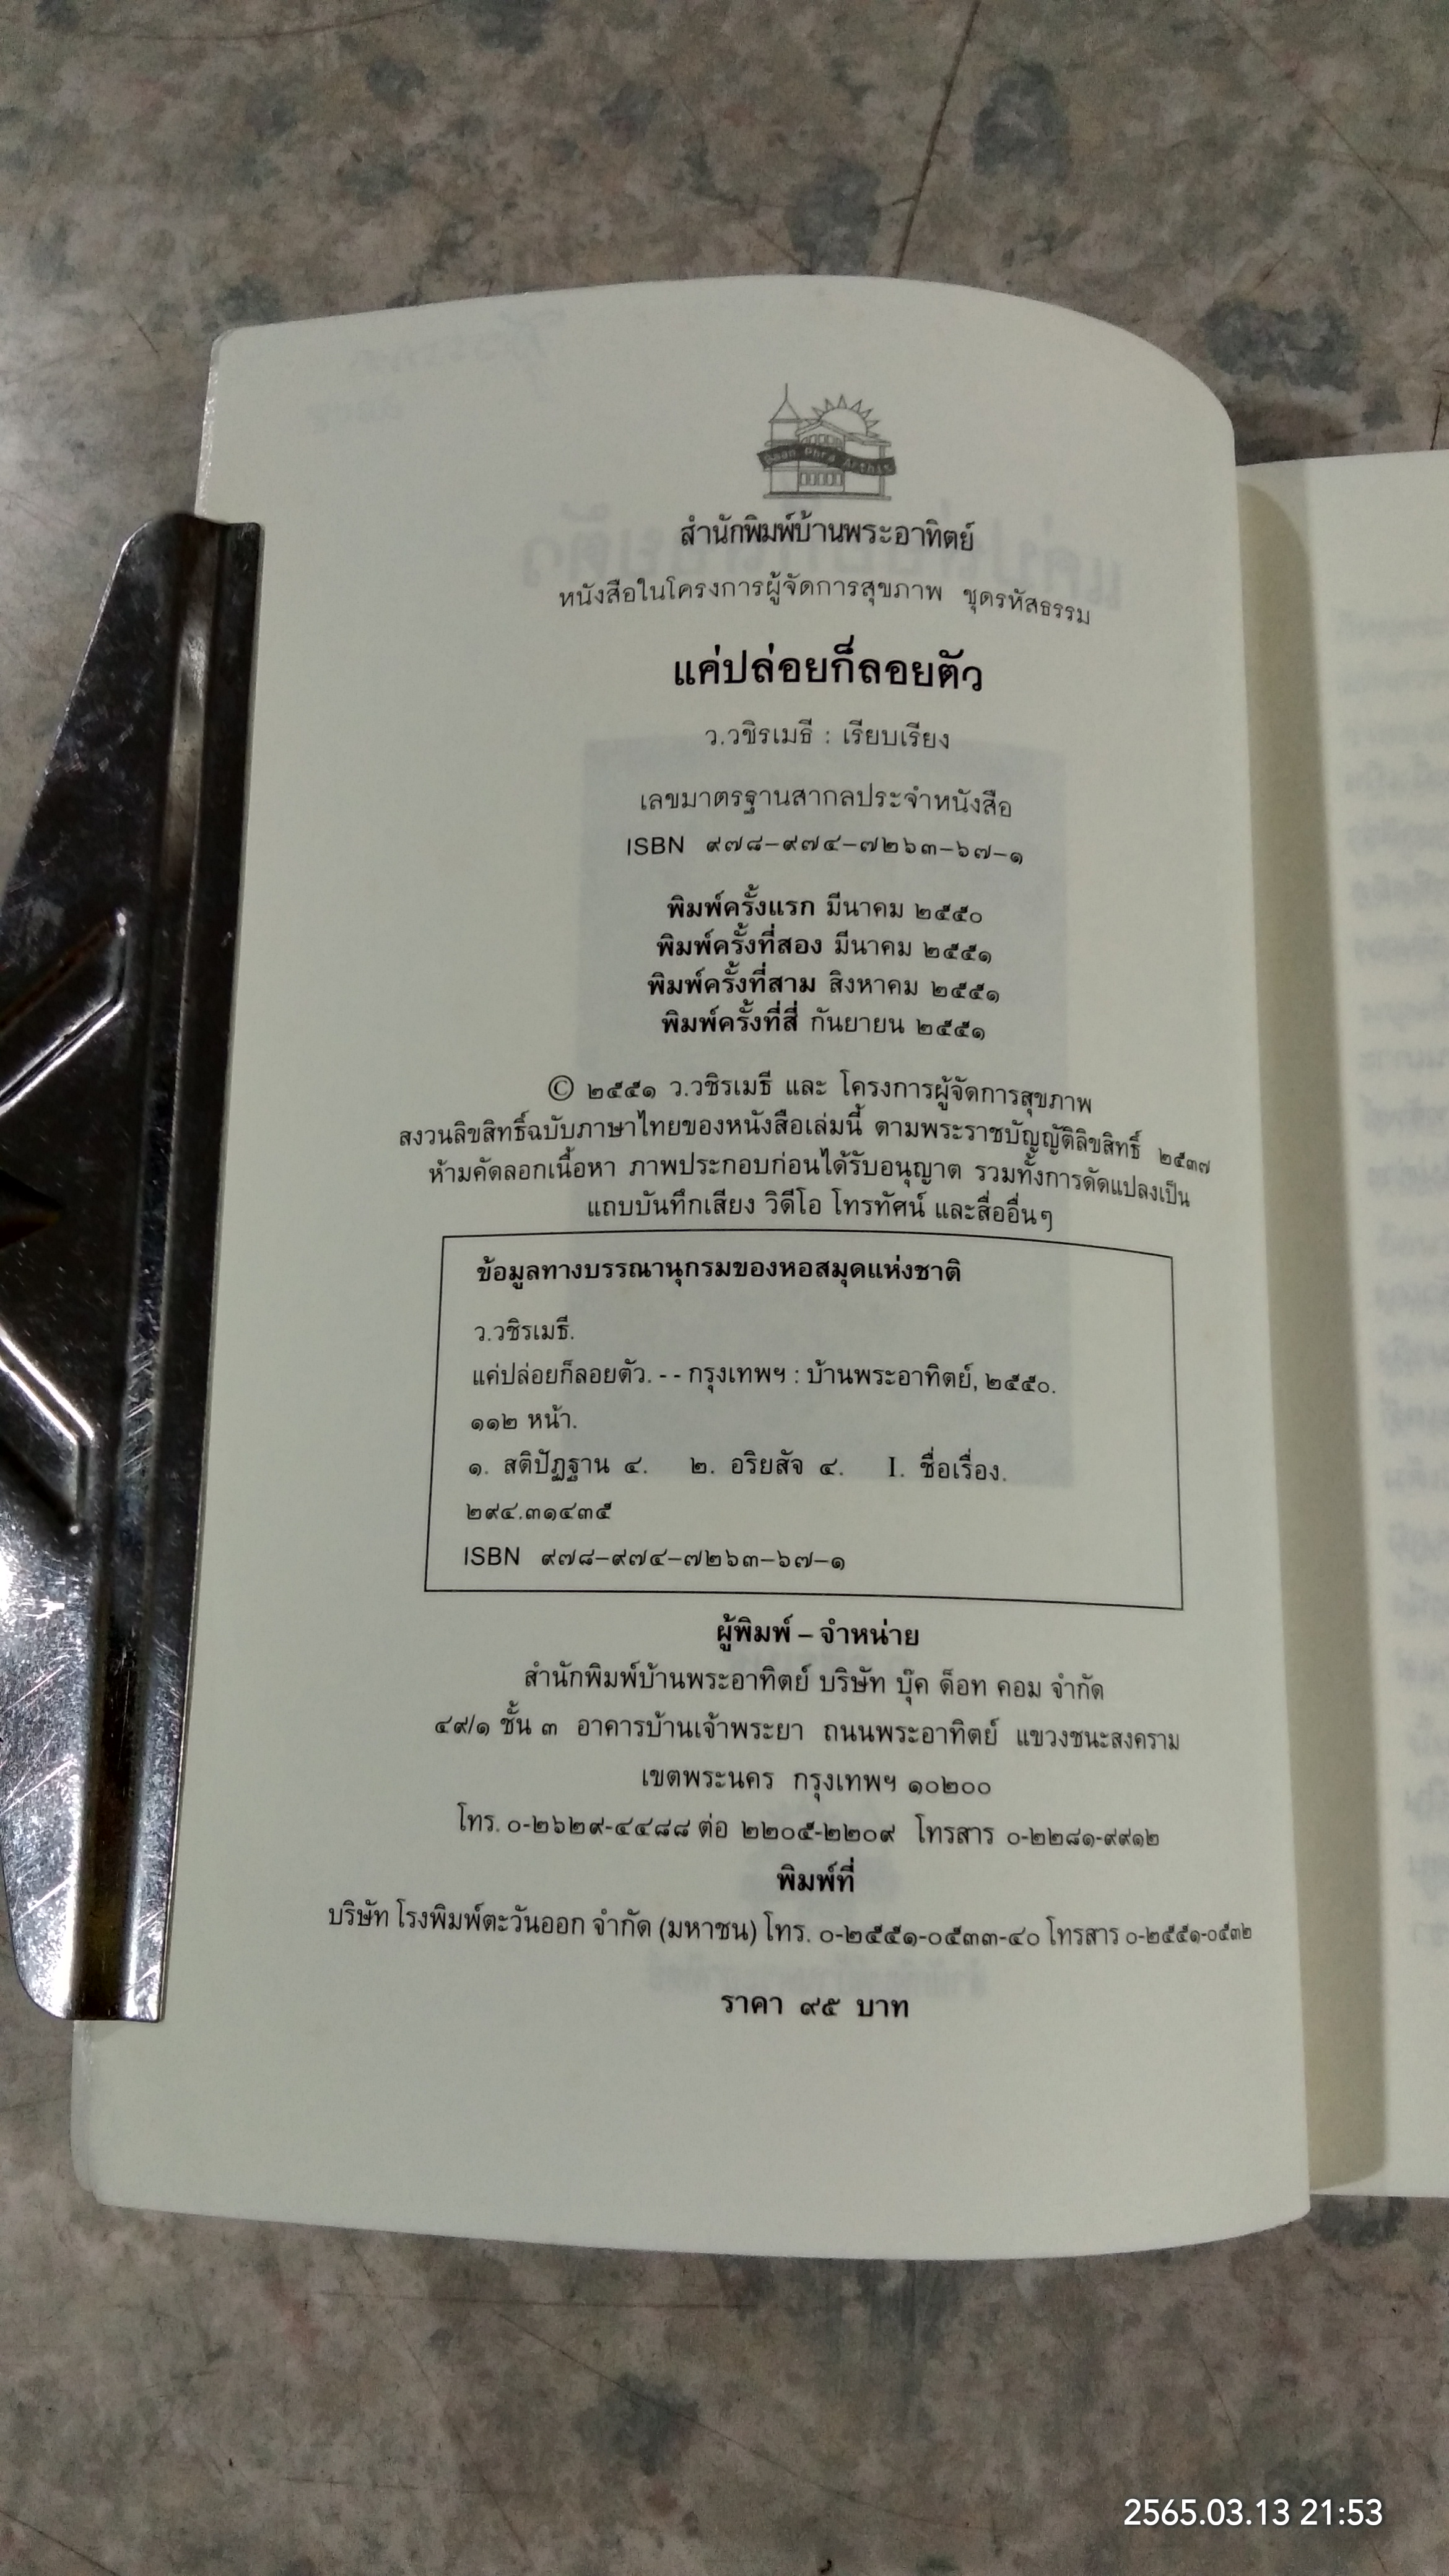 Baan Phra Arthit
สำนักพิมพ์บ้านพระอาทิตย์
หนังสือในโครงการผู้จัดการสุขภาพ ชุดรหัสธรรม
แค่ปล่อยก็ลอยตัว
ว.วชิรเมธี : เรียบเรียง
เลขมาตรฐานสากลประจำหนังสือ
ISBN ๙๗๘-๙๗๔-๗๒๖๓-๖๗-๑
พิมพ์ครั้งแรก มีนาคม ๒๕๕๐
พิมพ์ครั้งที่สอง มีนาคม ๒๕๕๑
พิมพ์ครั้งที่สาม สิงหาคม ๒๕๕๑
พิมพ์ครั้งที่สี่ กันยายน ๒๕๕๑
© ๒๕๕๑ ว.วชิรเมธี และ โครงการผู้จัดการสุขภาพ
สงวนลิขสิทธิ์ฉบับภาษาไทยของหนังสือเล่มนี้ ตามพระราชบัญญัติลิขสิทธิ์ ๒๕๓๗
ห้ามคัดลอกเนื้อหา ภาพประกอบก่อนได้รับอนุญาต รวมทั้งการดัดแปลงเป็น
แถบบันทึกเสียง วิดีโอ โทรทัศน์ และสื่ออื่นๆ
ข้อมูลทางบรรณานุกรมของหอสมุดแห่งชาติ
ว.วชิรเมธี.
แค่ปล่อยก็ลอยตัว. - - กรุงเทพฯ : บ้านพระอาทิตย์, ๒๕๕๐.
๑๑๒ หน้า.
๑. สติปัฏฐาน ๔. ๒. อริยสัจ ๔. I. ชื่อเรื่อง.
๒๙๔.๓๑๔๓๕
ISBN ๙๗๘-๙๗๔-๗๒๖๓-๖๗-๑
ผู้พิมพ์ – จำหน่าย
สำนักพิมพ์บ้านพระอาทิตย์ บริษัท บุ๊ค ด็อท คอม จำกัด
๔๙/๑ ชั้น ๓ อาคารบ้านเจ้าพระยา ถนนพระอาทิตย์ แขวงชนะสงคราม
เขตพระนคร กรุงเทพฯ ๑๐๒๐๐
โทร. ๐-๒๖๒๙-๔๔๘๘ ต่อ ๒๒๐๕-๒๒๐๙ โทรสาร ๐-๒๒๘๑-๙๙๑๒
พิมพ์ที่
บริษัท โรงพิมพ์ตะวันออก จำกัด (มหาชน) โทร. ๐-๒๕๕๑-๐๕๓๓-๔๐ โทรสาร ๐-๒๕๕๑-๐๕๓๒
ราคา ๙๕ บาท
2565.03.13 21:53